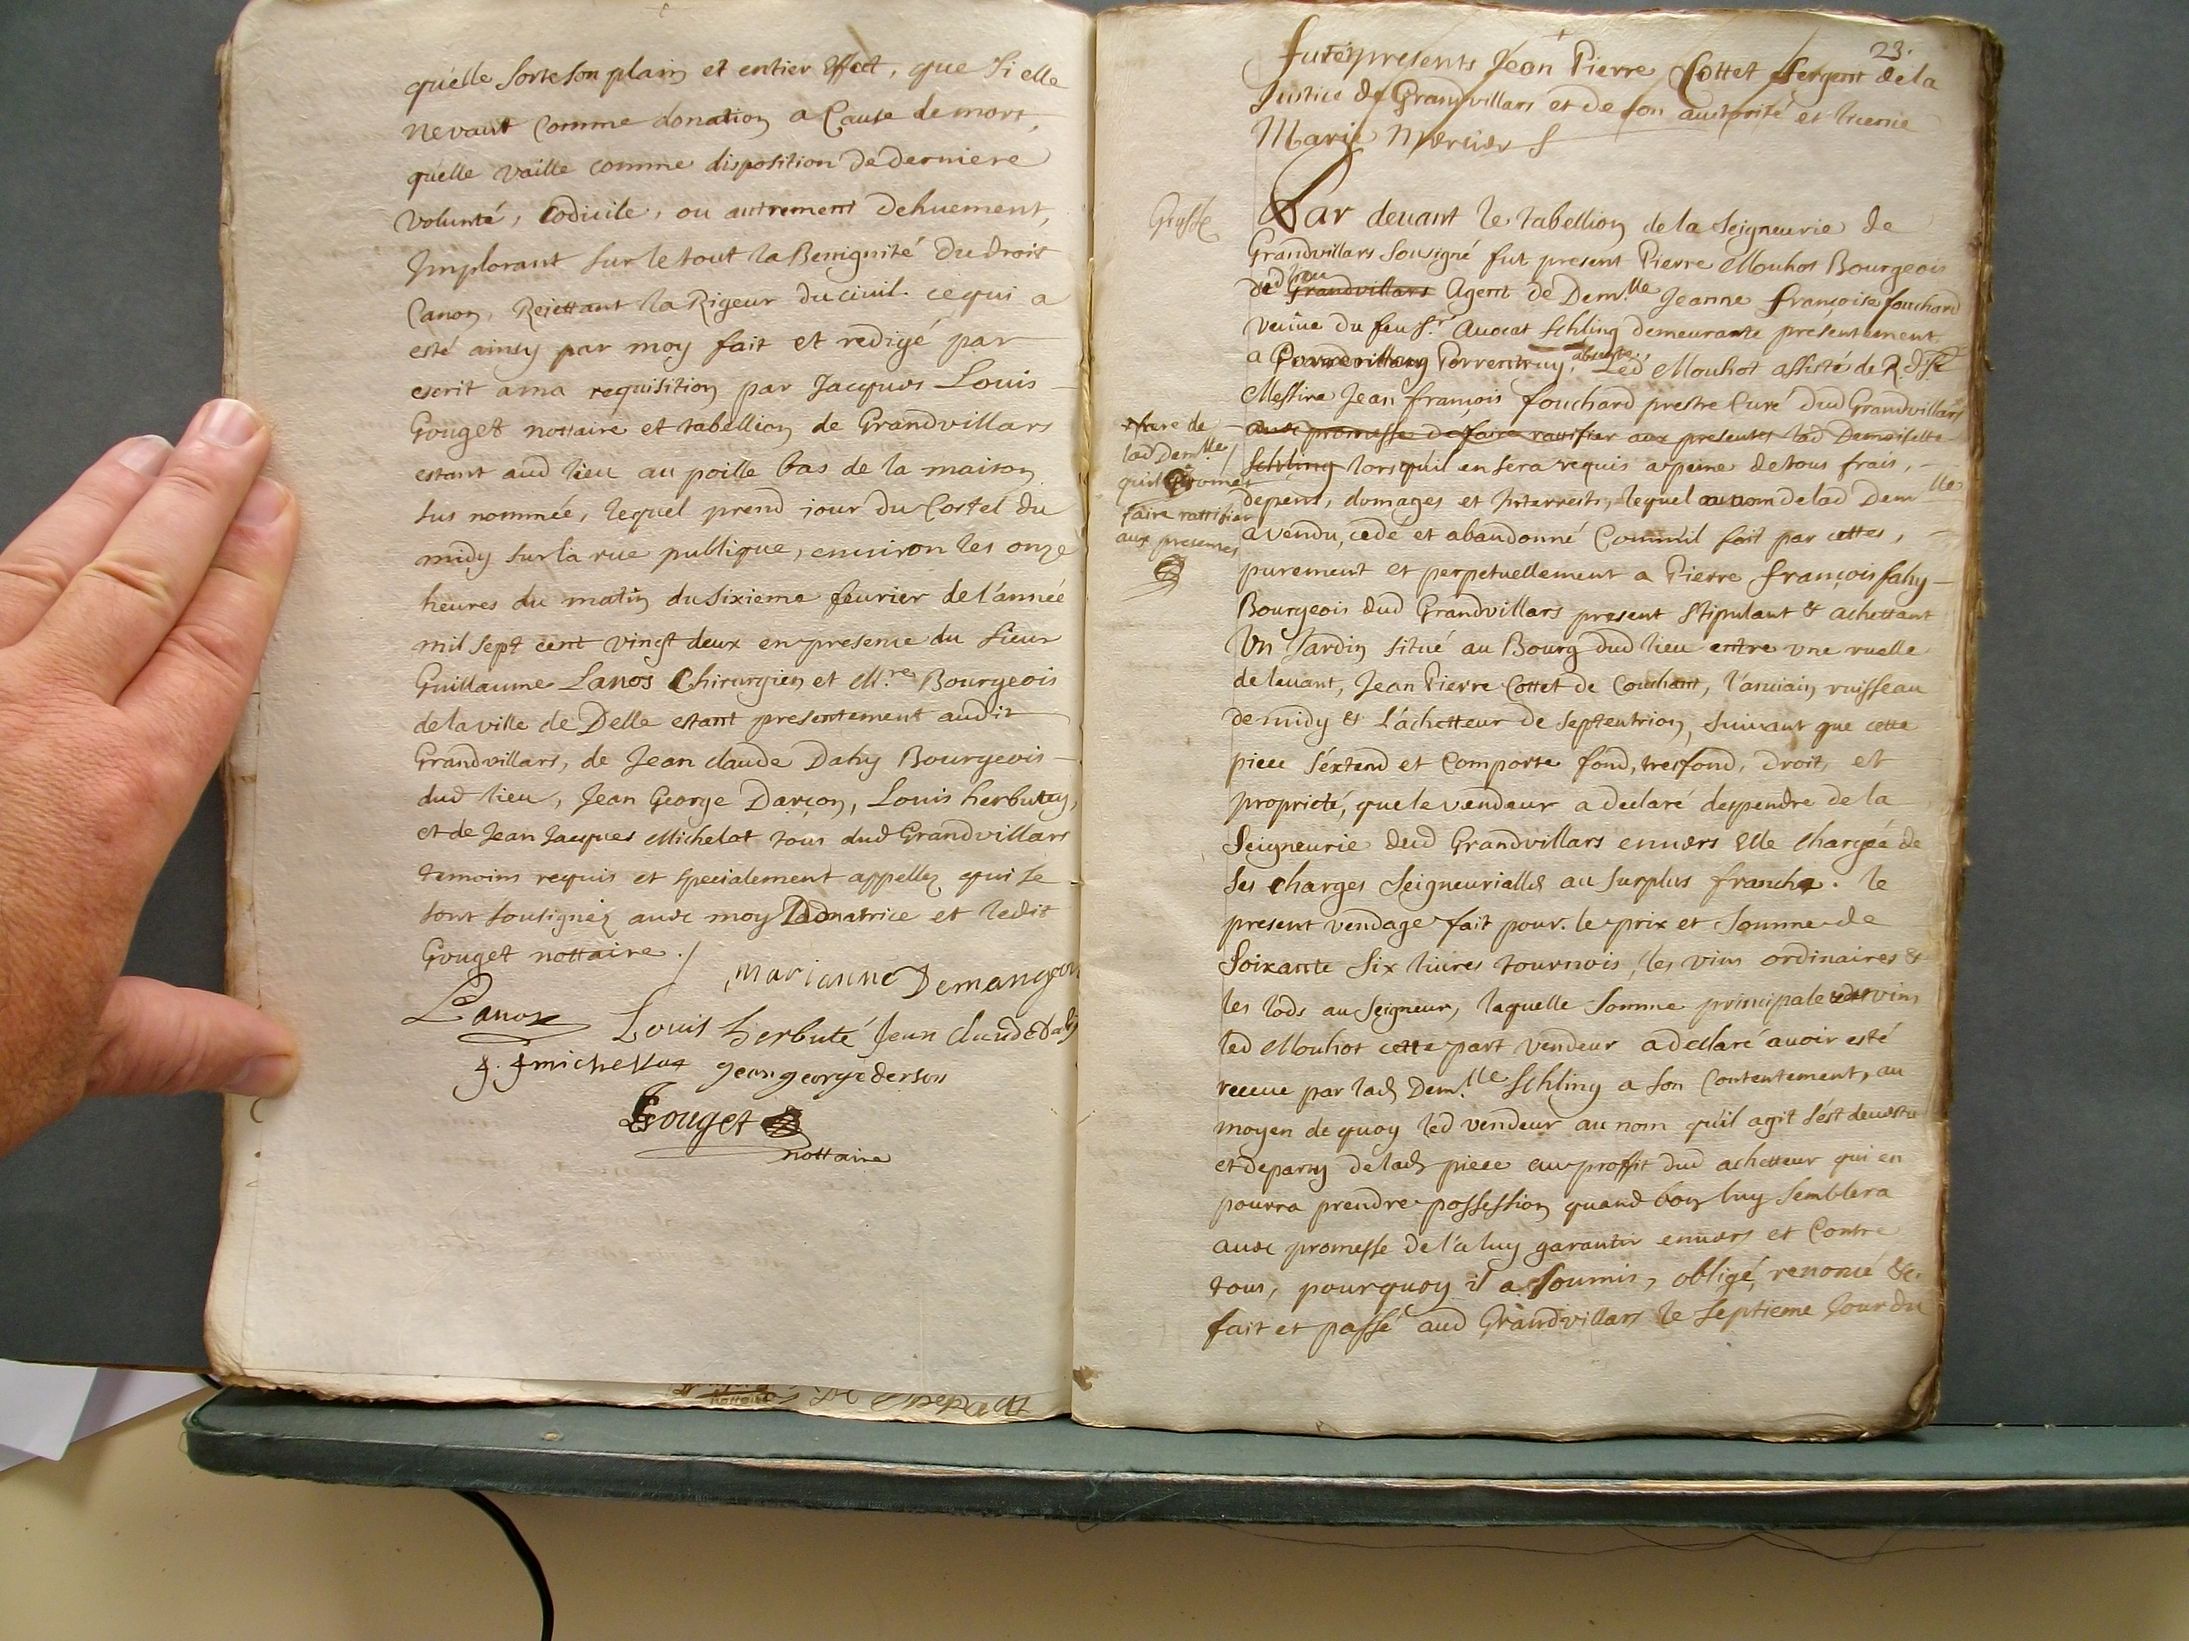 qu'elle sorte son plain et entier effect, que si elle
ne vaut comme donation a Cause de mort,
qu'elle vaille comme disposition de derniere
volunté, Codicile, ou autrement dehuement,
Implorant sur le tout la Benignité du droit
Canon, Rejettant la Rigeur du civil. ce qui a
esté ainsy par moy fait et redigé par
escrit a ma requisition par Jacques Louis
Gouget nottaire et tabellion de Grandvillars
estant aud lieu au poille bas de la maison
sus nommée, lequel prend jour du Costel du
midy sur la rue publique, environ les onze
heures du matin du sixieme feurier de l'année
mil sept cent vingt deux en presence du sieur
Guillaume Lanos Chirurgien et M.re Bourgeois
de la ville de Delle estant presentement audit
Grandvillars, de Jean claude Dahy Bourgeois
dud lieu, Jean George Darçon, Louis herbutey,
et de Jean Jacques Michelot tous dud Grandvillars
temoins requis et specialement appellez qui se
sont sousignéz avec moy Ladonatrice et ledit
Gouget nottaire ./
marianne Demangeon
Lanos Louis herbuté Jean claude Dahy
J. J michellat jean george derson
Gouget
nottaire
23.
furet presents Jean Pierre Cottet sergent de la
Justice de Grandvillars et de son authorité et licence
Marie Mercier
Grosse
Par devant le tabellion de la seigneurie de
Grandvillars sousigné fut present Pierre Mouhot Bourgeois
dud lieu Grandvillars Agent de Dem.lle Jeanne françoise fouchard
veuue du feu s.r Auocat schling demeurante presentement
a Porrentruy, absente. Led Mouhot assisté de
Messire Jean françois fouchard prestre Curé dud Grandvillars
avec promesse de faire rattifier aux presentes lad Demoiselle
Schling lorsquil en sera requis a peine de tous frais,
lad Dem.lle
quil promet
faire rattifier
aux presentes
depens, domages et Interrests, lequel au nom de lad Dem.lle
a vendu, cede et abandonné Comm'il fait par cettes,
purement et perpetuellement a Pierre françois fahy
Bourgeois dud Grandvillars present stipulant & achettant
Un Jardin situé au Bourg dud lieu entre une ruelle
de levant, Jean Pierre Cottet de Couchant, l'anciain ruisseau
de midy & l'achetteur de septentrion, suivant que cette
piece s'extend et Comporte fond, tresfond, droit, et
proprieté, que le vendeur a declaré despendre de la
Seigneurie dud Grandvillars envers Elle Chargée de
ses charges seigneurialles au surplus franche. le
present vendage fait pour. le prix et somme de
Soixante six livres tournois, les vins ordinaires &
les lods au seigneur, laquelle somme principale et vins
led Mouhot cette part vendeur a declaré avoir esté
receue par lad Dem.lle Schling a son Contentement, au
moyen de quoy led vendeur au nom qu'il agit s'est devestu
et departy de lad piece au proffit dud achetteur qui en
pourra prendre possession quand bon luy semblera
avec promesse de l'a luy garantir envers et Contre
tous, pourquoy il a soumis, obligé, renoncé &c.
fait et passé aud Grandvillars le septieme Jour du